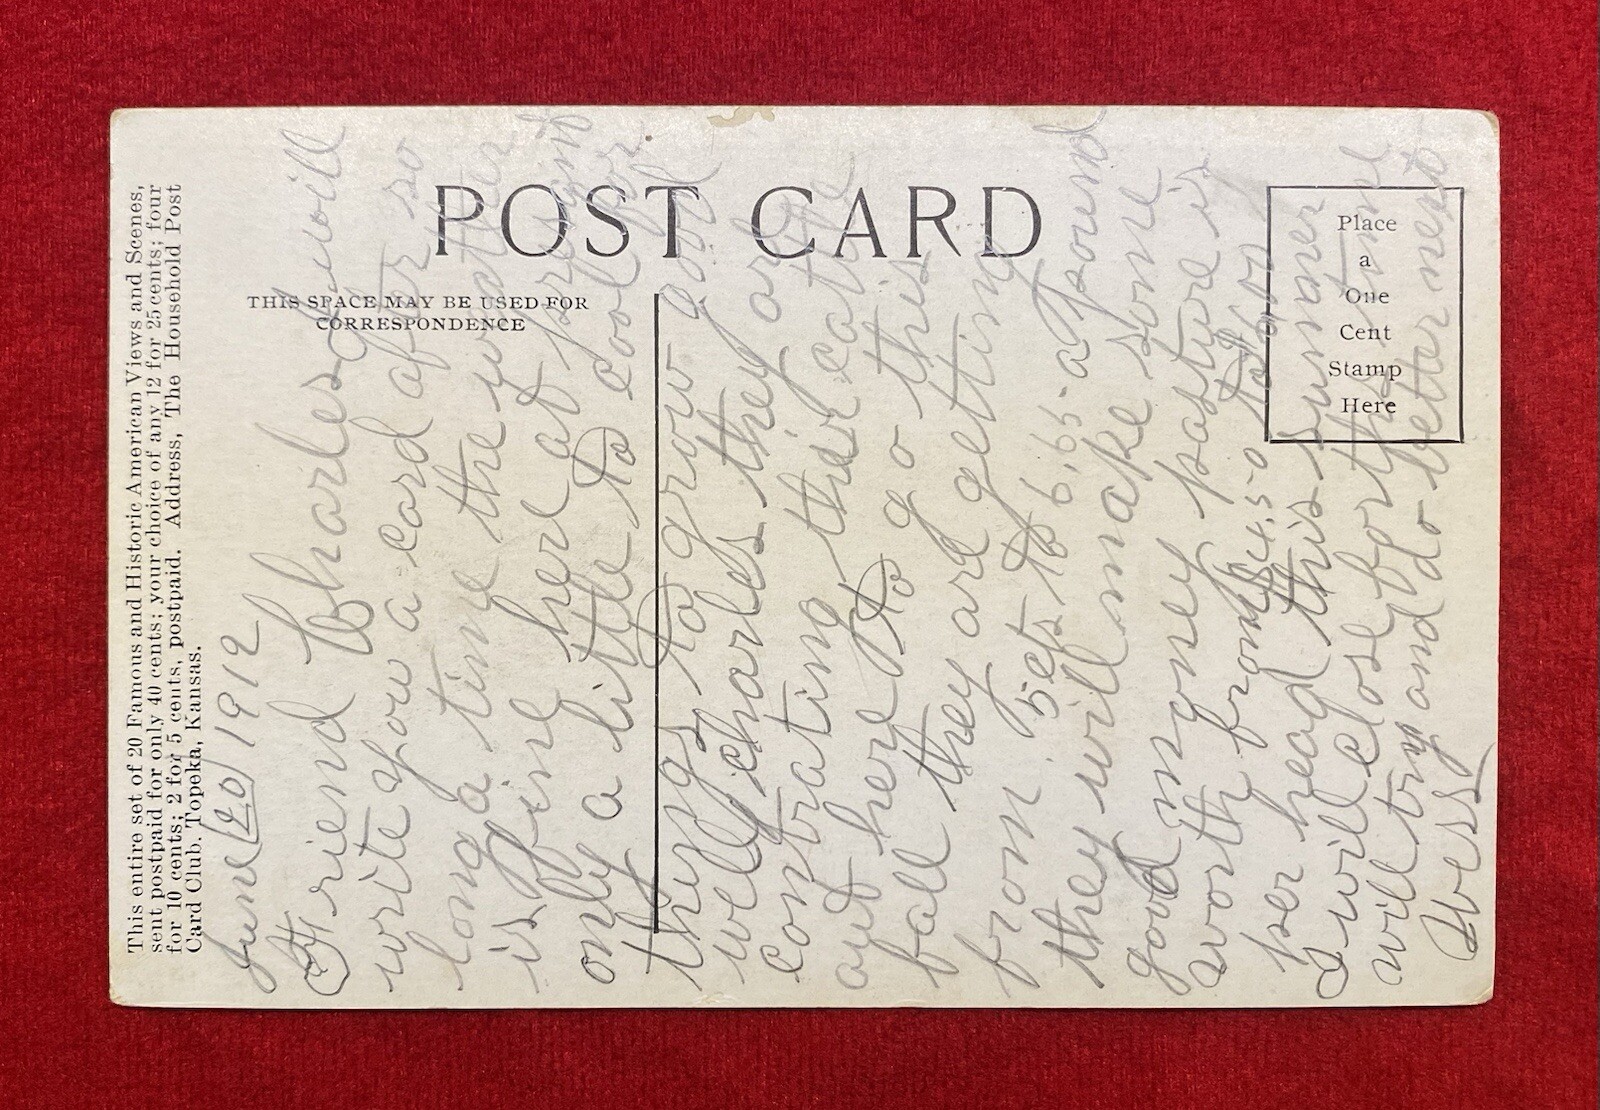 This entire set of 20 Famous and Historic American Views and Scenes,
sent postpaid for only 40 cents; your choice of any 12 for 25 cents; four
for 10 cents; 2 for 5 cents, postpaid. Address, The Household Post
Card Club, Topeka, Kansas.
POST CARD
THIS SPACE MAY BE USED FOR
CORRESPONDENCE
Place
a
One
Cent
Stamp
Here
June 20 1912
Friend Charles I will
write you a card after so
long a time the weather
is fine here at present
only a little to cool for
things to grow good
well charles they are
contrating their cattle
out here to go this
fall they are getting
from 5cts to 6.65 a pound
they will make some
good money pasture is
worth from $4.50 to
per head this summer
I will close for this time
will try and do better next
Wess